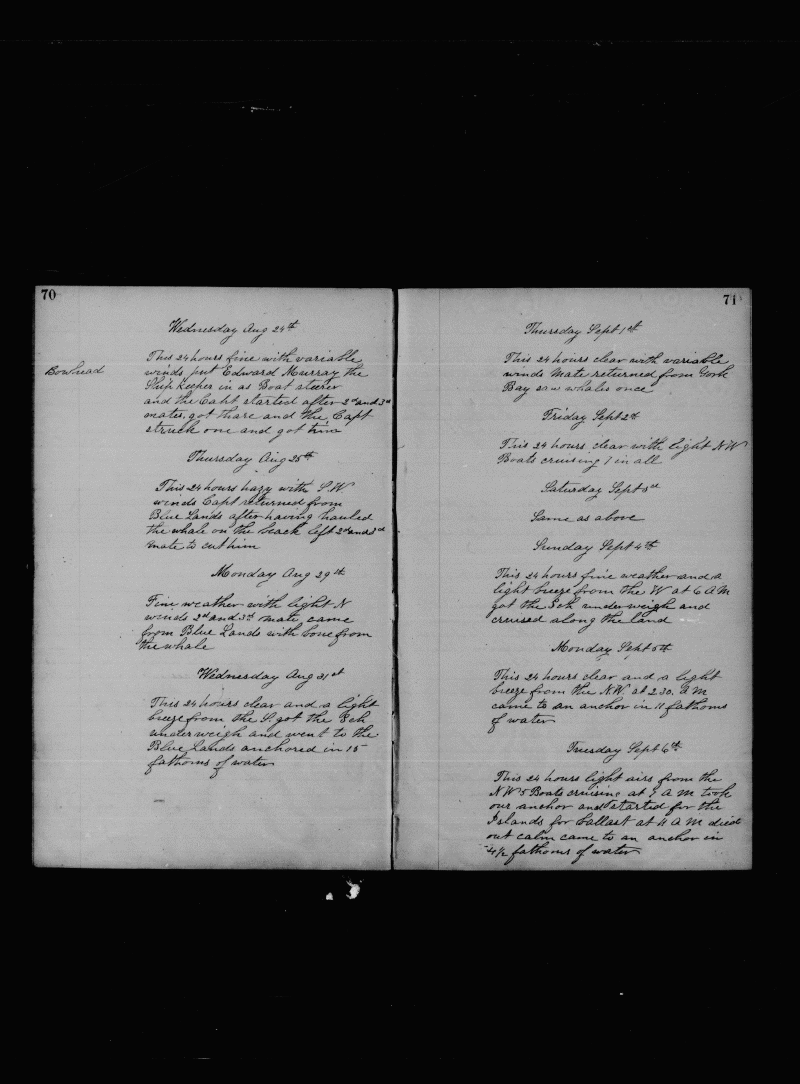 70
Wednesday Aug 24th
Bowhead
This 24 hours fine with variable
winds put Edward Murray the
Ship Keeper in as Boat steerer
and the Capt started after 2nd and 3rd
mates, got thare and the Capt
struck one and got him
Thursday Aug 25th
This 24 hours hazy with S.W.
winds Capt returned from
Blue Lands after having hauled
the whale on the beach left 2nd and 3rd
mate to cut him
Monday Aug 29th
Fine weather with light N
winds 2nd and 3rd mate came
from Blue Lands with bone from
the whale
Wednesday Aug 31st
This 24 hours clear and a light
breeze from the S. got the Sch
underweigh and went to the
Blue Lands anchored in 15
fathoms of water
71
Thursday Sept 1st
This 24 hours clear with variable
winds Mate returned from York
Bay saw whales once
Friday Sept 2d
This 24 hours clear with light NW
Boats cruising 7 in all
Saturday Sept 3rd
Same as above
Sunday Sept 4th
This 24 hours fine weather and a
light breeze from the W at 6 A M
got the Sch underweigh and
cruised along the land
Monday Sept 5th
This 24 hours clear and a light
breeze from the N.W. at 2.30. A M
came to an anchor in 11 fathoms
of water
Tuesday Sept 6th
This 24 hours light airs from the
N W 5 Boats cruising at A M took
our anchor and started for the
Islands for ballast at 11 A M died
out calm came to an anchor in
4 1/2 fathoms of water